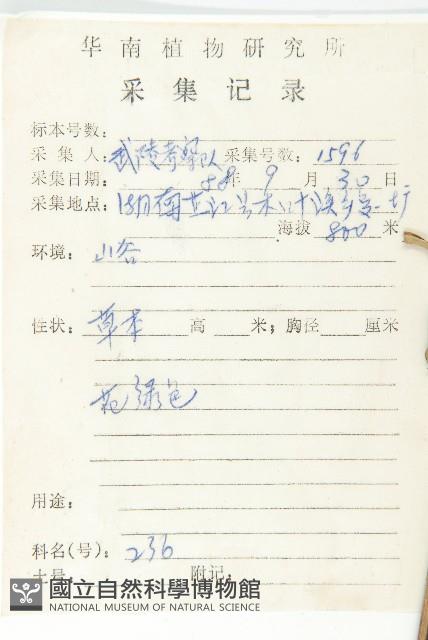 华南植物研究所
采集记录
标本号数:
采集人: 武陵考察队 采集号数: 1596
采集日期: 88年 9 月 30 日
采集地点: 湖南芷江
海拔 800 米
环境: 山谷
性状: 草本 高 米; 胸径 厘米
花绿色
用途:
科名(号): 236
土名: 附记:
國立自然科學博物館
NATIONAL MUSEUM OF NATURAL SCIENCE